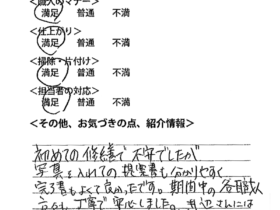 <職人のマナー>
満足 普通 不満
<仕上がり>
満足 普通 不満
<掃除・片付け>
満足 普通 不満
<担当者の対応>
満足 普通 不満
<その他、お気づきの点、紹介情報>
初めての修繕で不安でしたが
写真も入れての提案書も分かりやすく
完了書もよくて良かったです。期間中の各職人
さんも丁寧で安心しました。